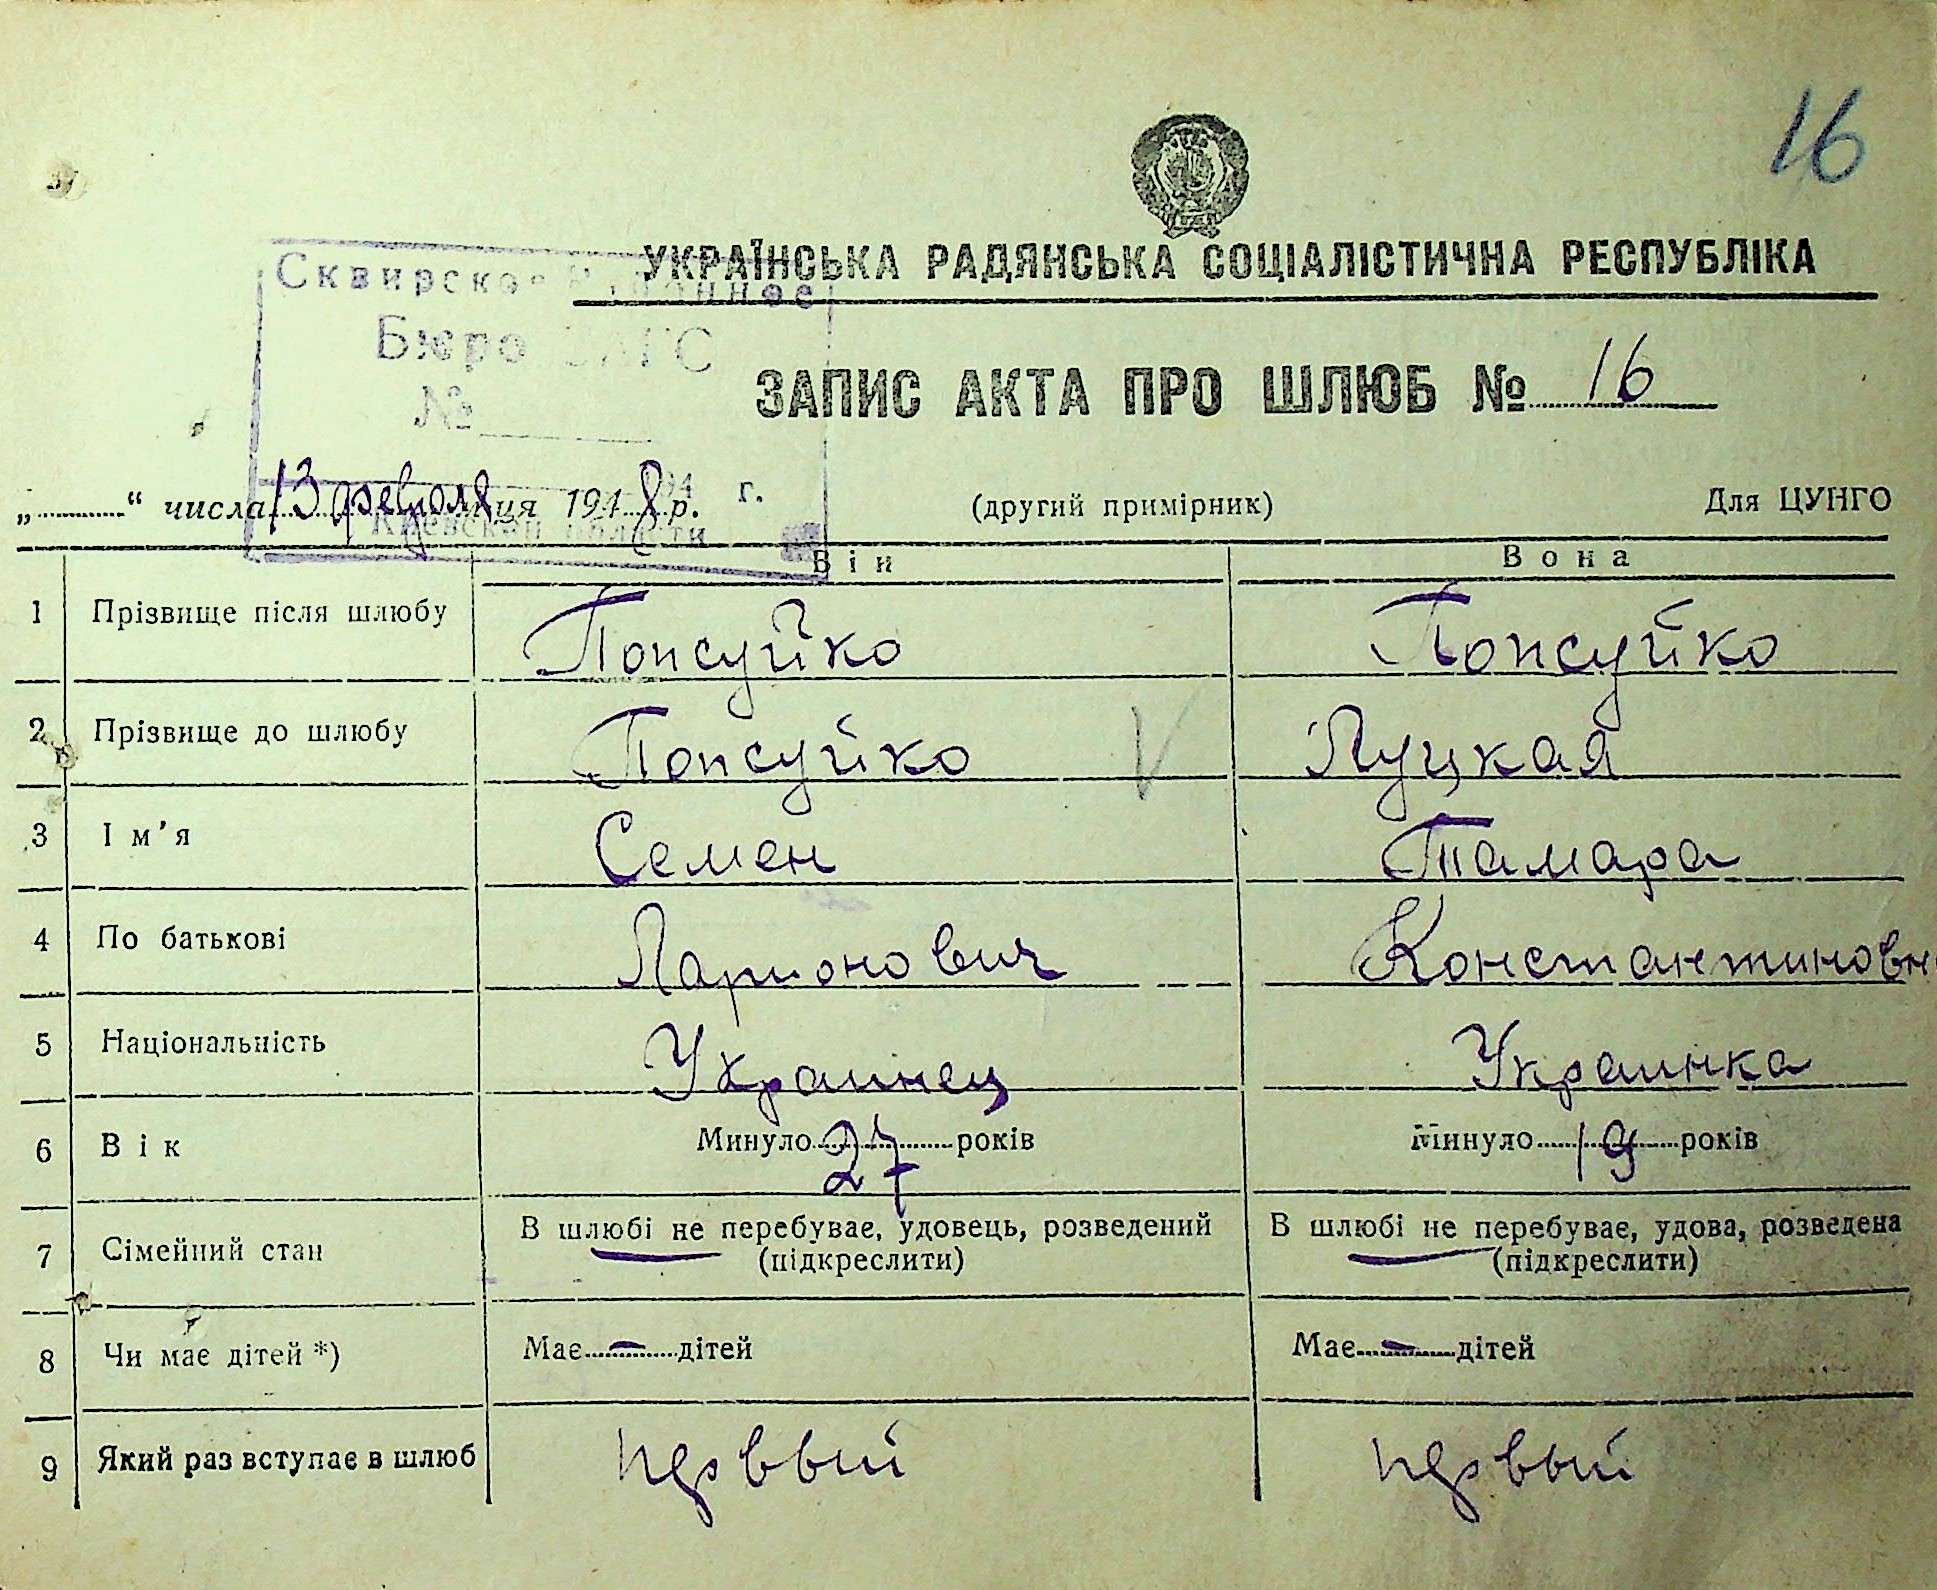 16
УКРАЇНСЬКА РАДЯНСЬКА СОЦІАЛІСТИЧНА РЕСПУБЛІКА
Сквирское Районное
Бюро ЗАГС
№
194 г.
Киевской области
ЗАПИС АКТА ПРО ШЛЮБ № 16
„ “ числа 13 февраля ця 1948 р. (другий примірник) Для ЦУНГО
Він Вона
1 Прізвище після шлюбу Попсуйко Попсуйко
2 Прізвище до шлюбу Попсуйко Луцкая
3 Ім’я Семен Тамара
4 По батькові Ларионович Константиновн
5 Національність Украинец Украинка
6 Вік Минуло 27 років Минуло 19 років
7 Сімейний стан В шлюбі не перебуває, удовець, розведений (підкреслити) В шлюбі не перебуває, удова, розведена (підкреслити)
8 Чи має дітей *) Має – дітей Має – дітей
9 Який раз вступає в шлюб первый первый